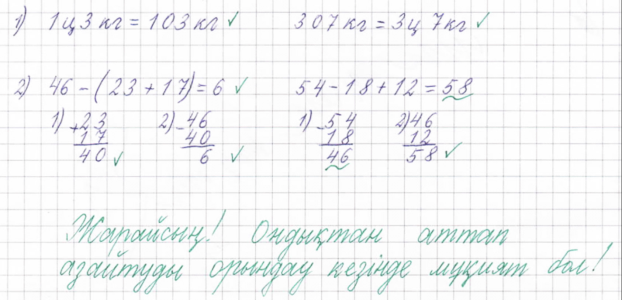 1) 1ц 3 кг = 103 кг ✓ 307 кг = 3ц 7кг ✓
2) 46 - (23 + 17) = 6 ✓ 54 - 18 + 12 = 58
1) + 23 2) - 46 1) - 54 2) 46
17 40 18 12
40 ✓ 6 ✓ 46 58 ✓
Жарайсың! Ондықтан аттап
азайтуды орындау кезінде мұқият бол!